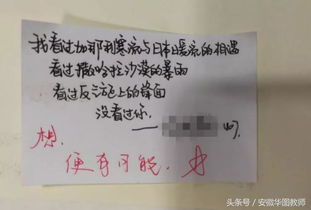 我看过加那利寒流与日本暖流的相遇
看过撒哈拉沙漠的暴雨
看过反气旋上的锋面
没看过你.
——
想.
便有可能.
头条号/安徽华图教师